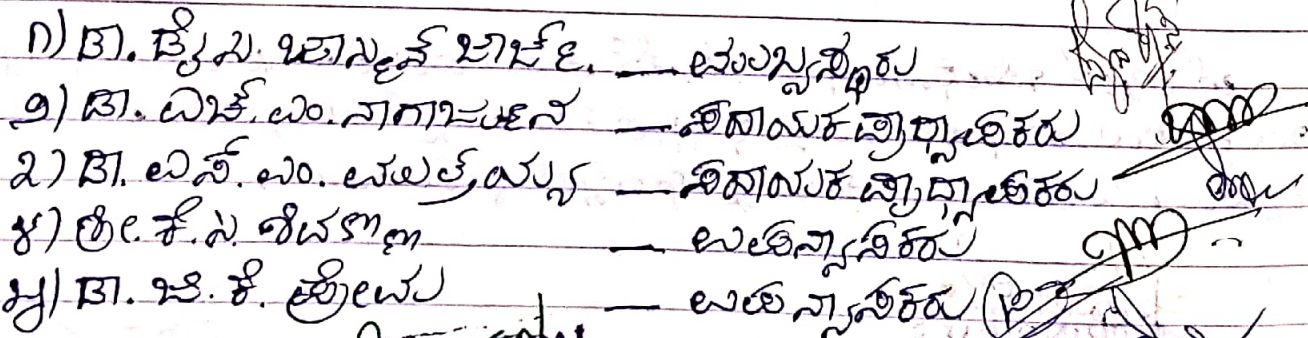 ೧) ಡಾ. ಡೈಸಿ. ಜಾರ್ಜ್. — ಮುಖ್ಯಸ್ಥರು
೨) ಡಾ. ಎಚ್. ಎಂ. ನಾಗಾರ್ಜುನ — ಸಹಾಯಕ ಪ್ರಾಧ್ಯಾಪಕರು
೩) ಡಾ. ಎಸ್. ಎಂ. — ಸಹಾಯಕ ಪ್ರಾಧ್ಯಾಪಕರು
೪) ಶ್ರೀ. ಕೆ. ಸಿ. ಶಿವಣ್ಣ — ಉಪನ್ಯಾಸಕರು
೫) ಡಾ. ಜಿ. ಕೆ. ಪ್ರೇಮ — ಉಪನ್ಯಾಸಕರು